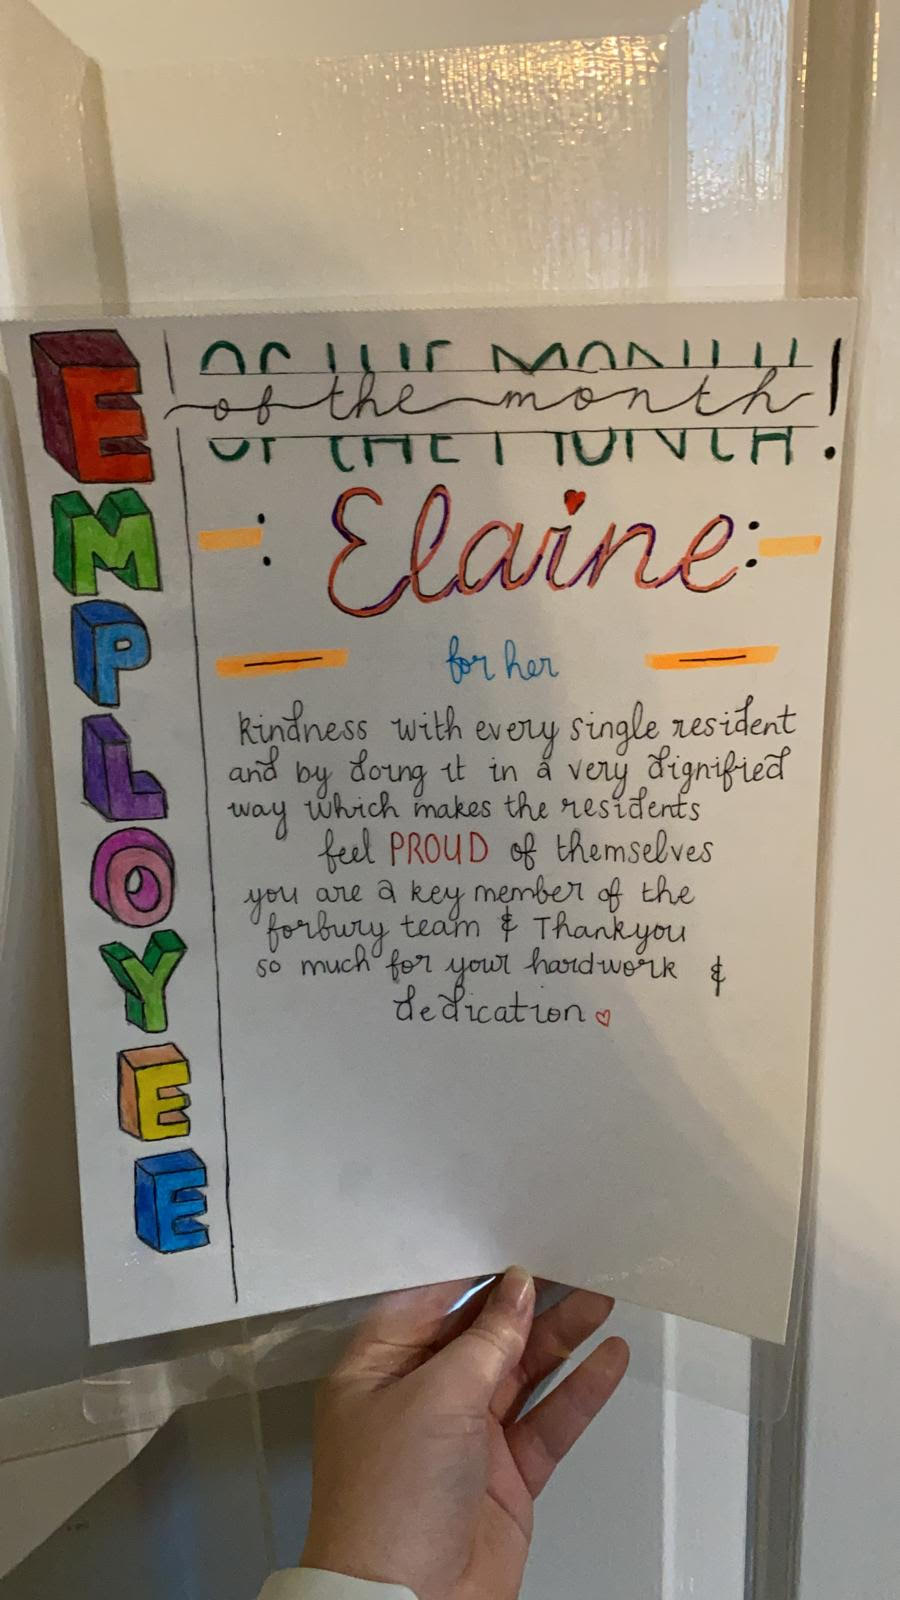 EMPLOYEE
OF THE MONTH!
of the month
: Elaine :
for her
kindness with every single resident
and by doing it in a very dignified
way which makes the residents
feel PROUD of themselves
you are a key member of the
forbury team & Thankyou
so much for your hardwork &
dedication